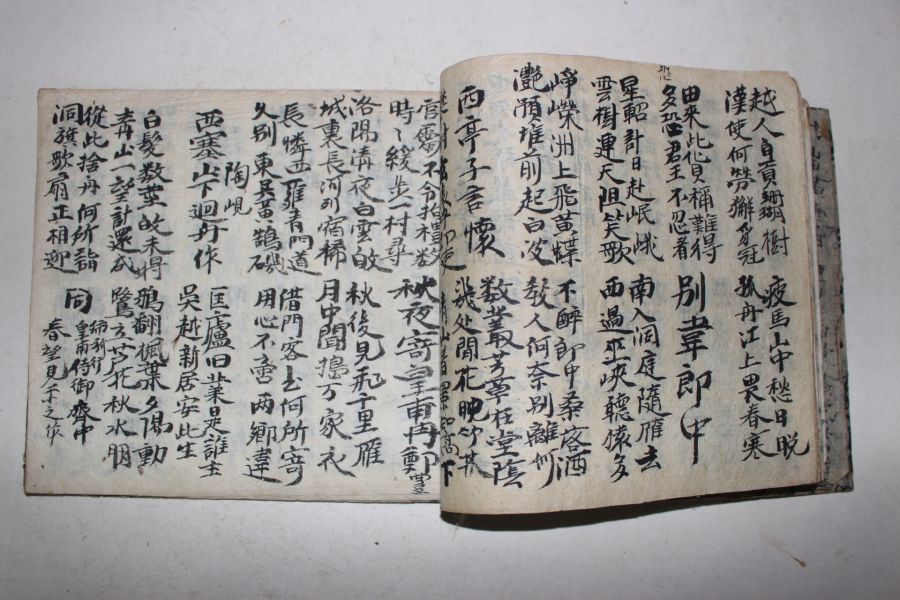 越人自貢珊瑚樹
漢使何勞獬豸冠
疲馬山中愁日晩
孤舟江上畏春寒
由来此貨稱難得
多恐君王不忍看
別韋郎中
星軺計日赴岷峨
雲樹連天阻笑歌
南入洞庭隨雁去
西過巫峽聽猿多
崢嶸洲上飛黃蝶
灔澦堆前起白波
不醉郎中桑落酒
教人何奈別離何
西亭子言懷
數叢芳草在堂陰
幾处閒花晩
青山看景知高下
官屬不令拘禮數
時〻緩步一村尋
秋夜寄皇甫冉鄭豊
洛陽清夜白雲歸
城裏長河列宿稀
秋後見飛千里雁
月中聞搗万家衣
長憐西雍青門道
久別東吳黃鵠磯
借問客书何所寄
用心不啻两鄉違
西塞山下迴舟作
陶峴
匡廬旧業是誰主
吳越新居安此生
白髮数莖故未得
靑山一望計還成
鴉翻楓葉夕陽動
鷺立芦花秋水明
從此捨舟何所詣
酒旗歌扇正相迎
同
皇甫侍御齋中
春望見示之作